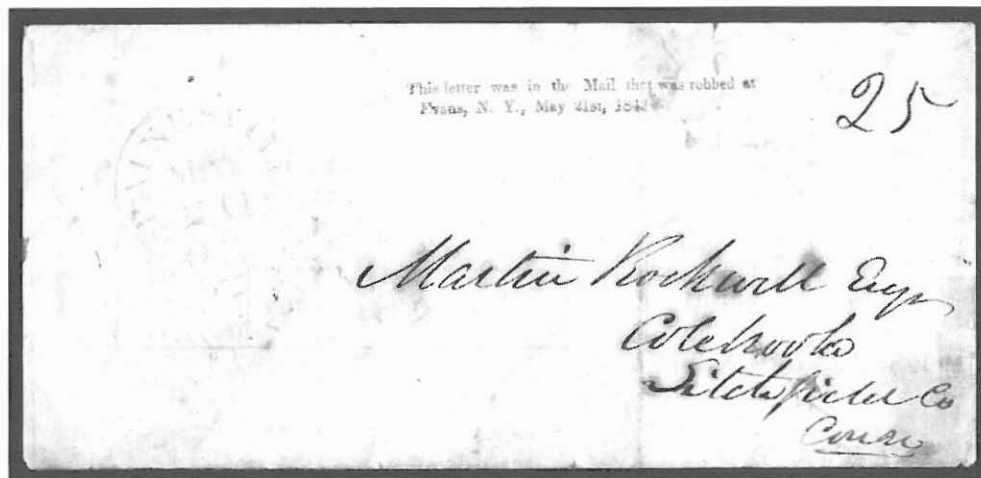 This letter was in the Mail that was robbed at
Evans, N. Y., May 21st, 1843
25
Martin Rockwell Esqr
Colebrook
Litchfield Co
Conn